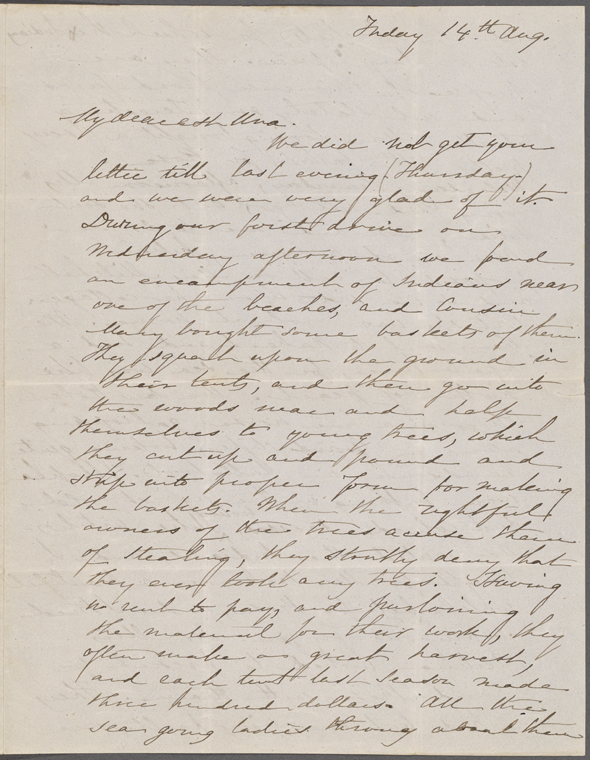 Friday 14th Aug.
My dearest Una.
We did not get your
letter till last evening (Thursday)
and we were very glad of it.
During our first drive on
Wednesday afternoon we found
an encampment of Indians near
one of the beaches, and Cousin
Mary bought some baskets of them.
They squat upon the ground in
their tents, and then go into
the woods near and help
themselves to young trees, which
they cut up and pound and
strip into proper form for making
the baskets. When the rightful
owners of the trees accuse them
of stealing, they stoutly deny that
they ever took any trees. Having
no rent to pay, and purloining
the material for their work, they
often make a great harvest,
and each tent last season made
three hundred dollars. All the
sea going ladies throng about them